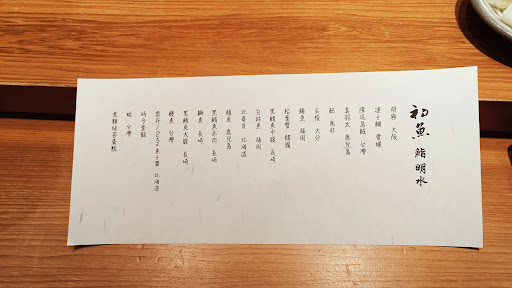 初魚 鮨明水
胡麻 大阪
蓮子鯛 愛媛
障泥烏賊 台灣
喜羽太 鹿兒島
鮑 南非
尖梭 大分
鰆魚 福岡
松葉蟹 韓國
黑鮪魚中腹 長崎
白帶魚 福岡
北寄貝 北海道
鰹魚 鹿兒島
黑鮪魚赤肉 長崎
鰤魚 長崎
黑鮪魚大腹 長崎
鰻魚 台灣
雲丹 北海道
時令蜜瓜
蜆 台灣
黑糖焙茶蛋糕